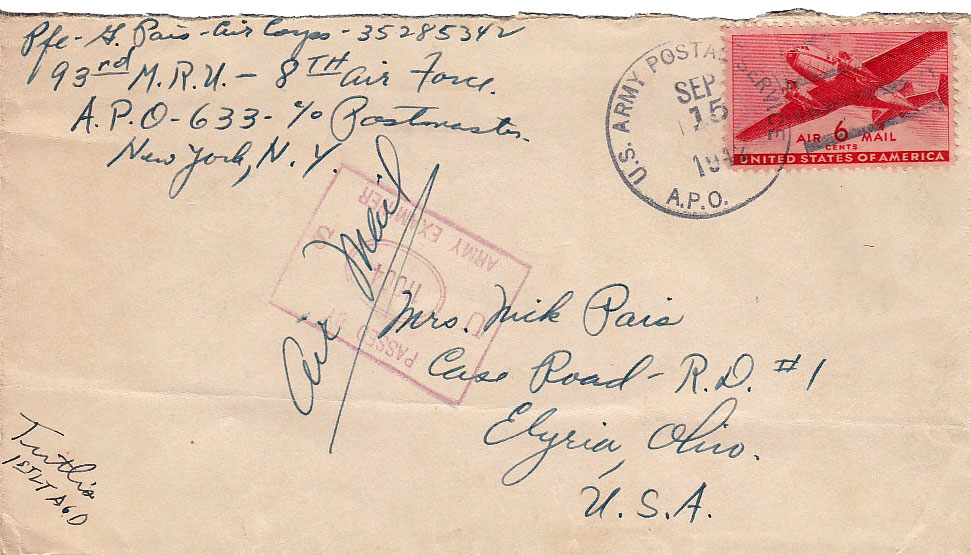 Pfc - G. Pais - Air Corps - 35285342
93rd M.R.U. - 8TH Air Force.
A.P.O - 633 - c/o Postmaster
New York, N.Y.
U.S. ARMY POSTAL SERVICE
SEP
15
A.P.O.
AIR 6 MAIL
CENTS
UNITED STATES OF AMERICA
Air Mail
PASSED BY
U S
ARMY EXAMINER
Mrs. Mik Pais
Case Road - R.D. #1
Elyria, Ohio.
U.S.A.
1ST LT AGD